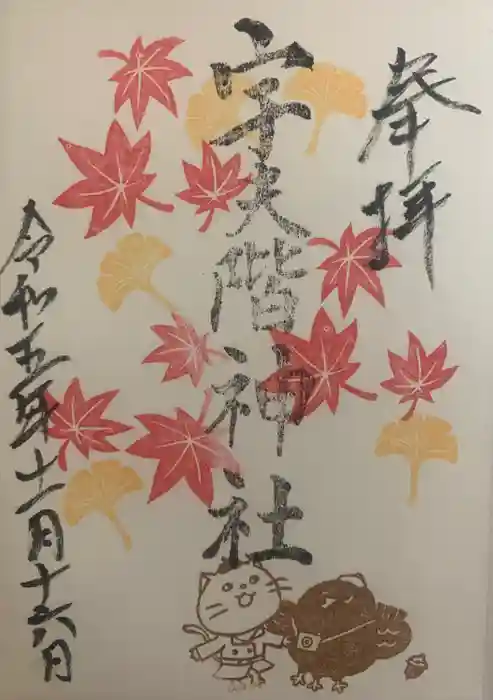 奉拝
宇夫階神社
令和五年十一月十六日